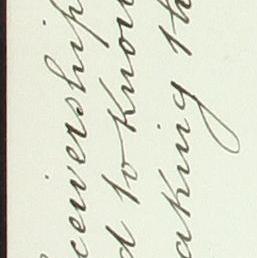 ceivership
d to know
aking th